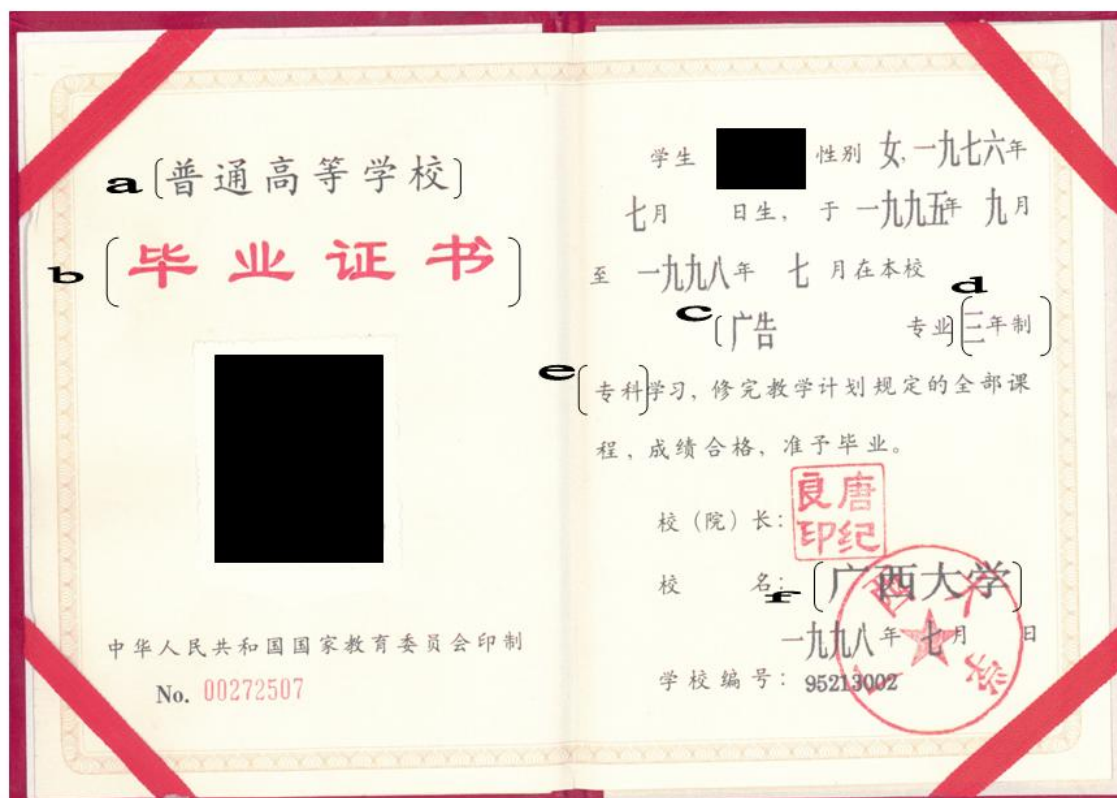 a 普通高等学校
b 毕业证书
中华人民共和国国家教育委员会印制
No. 00272507
学生 性别 女, 一九七六年
七月 日生, 于 一九九五年 九月
至 一九九八年 七 月在本校
c 广告 专业 d 三年制
e 专科学习, 修完教学计划规定的全部课
程, 成绩合格, 准予毕业。
校(院)长: 唐纪良印
校 名: f 广西大学
一九九八年 七月 日
学校编号: 95213002
广西大学